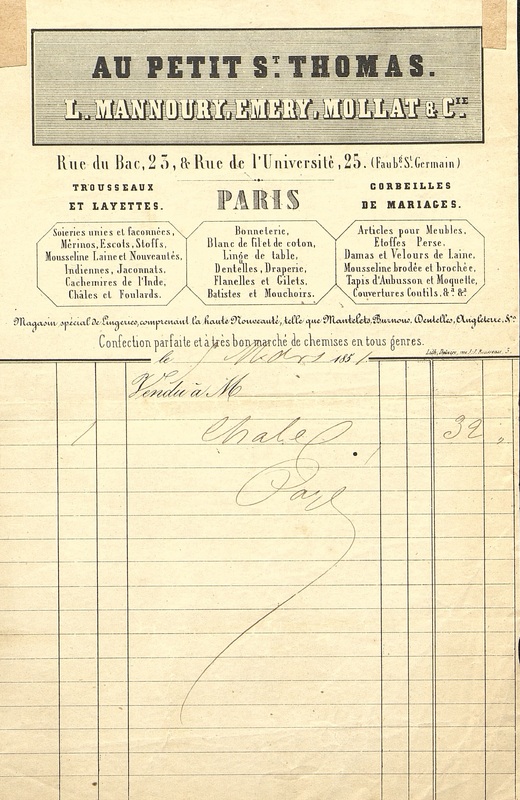 AU PETIT ST. THOMAS.
L. MANNOURY, EMERY, MOLLAT & CIE.
Rue du Bac, 23, & Rue de l'Université, 25. (Faubg St. Germain)
TROUSSEAUX
ET LAYETTES.
PARIS
CORBEILLES
DE MARIAGES.
Soieries unies et façonnées,
Mérinos, Escots, Stoffs,
Mousseline Laine et Nouveautés,
Indiennes, Jaconnats,
Cachemires de l'Inde,
Châles et Foulards.
Bonneterie,
Blanc de fil et de coton,
Linge de table,
Dentelles, Draperie,
Flanelles et Gilets,
Batistes et Mouchoirs.
Articles pour Meubles,
Etoffes Perse,
Damas et Velours de Laine,
Mousseline brodée et brochée,
Tapis d'Aubusson et Moquette,
Couvertures Coutils, &a &a.
Magasin spécial de Lingeries, comprenant la haute Nouveauté, telle que Mantelets, Burnous, Dentelles, Angleterre,
Confection parfaite et à très bon marché de chemises en tous genres.
le Mars 185
Vendu à M
1 Chale 32 "
Payé